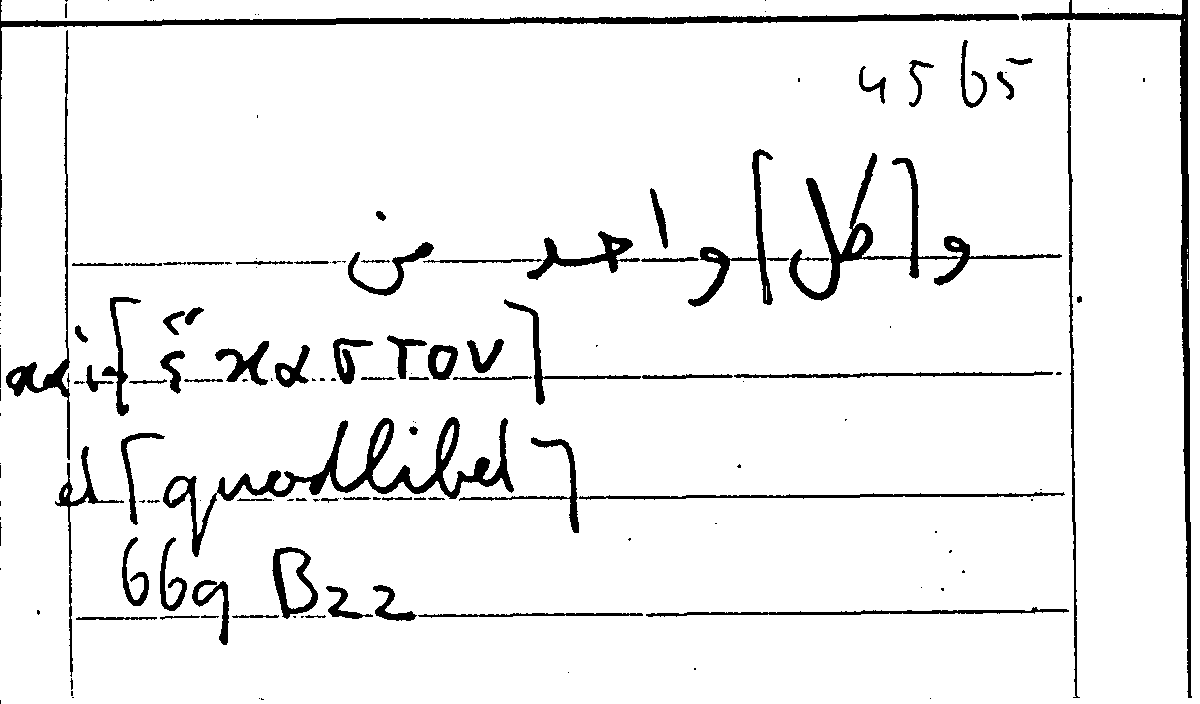 4565
و[كل] واحد من
και [ἕκαστον]
et [quodlibet]
669 B22